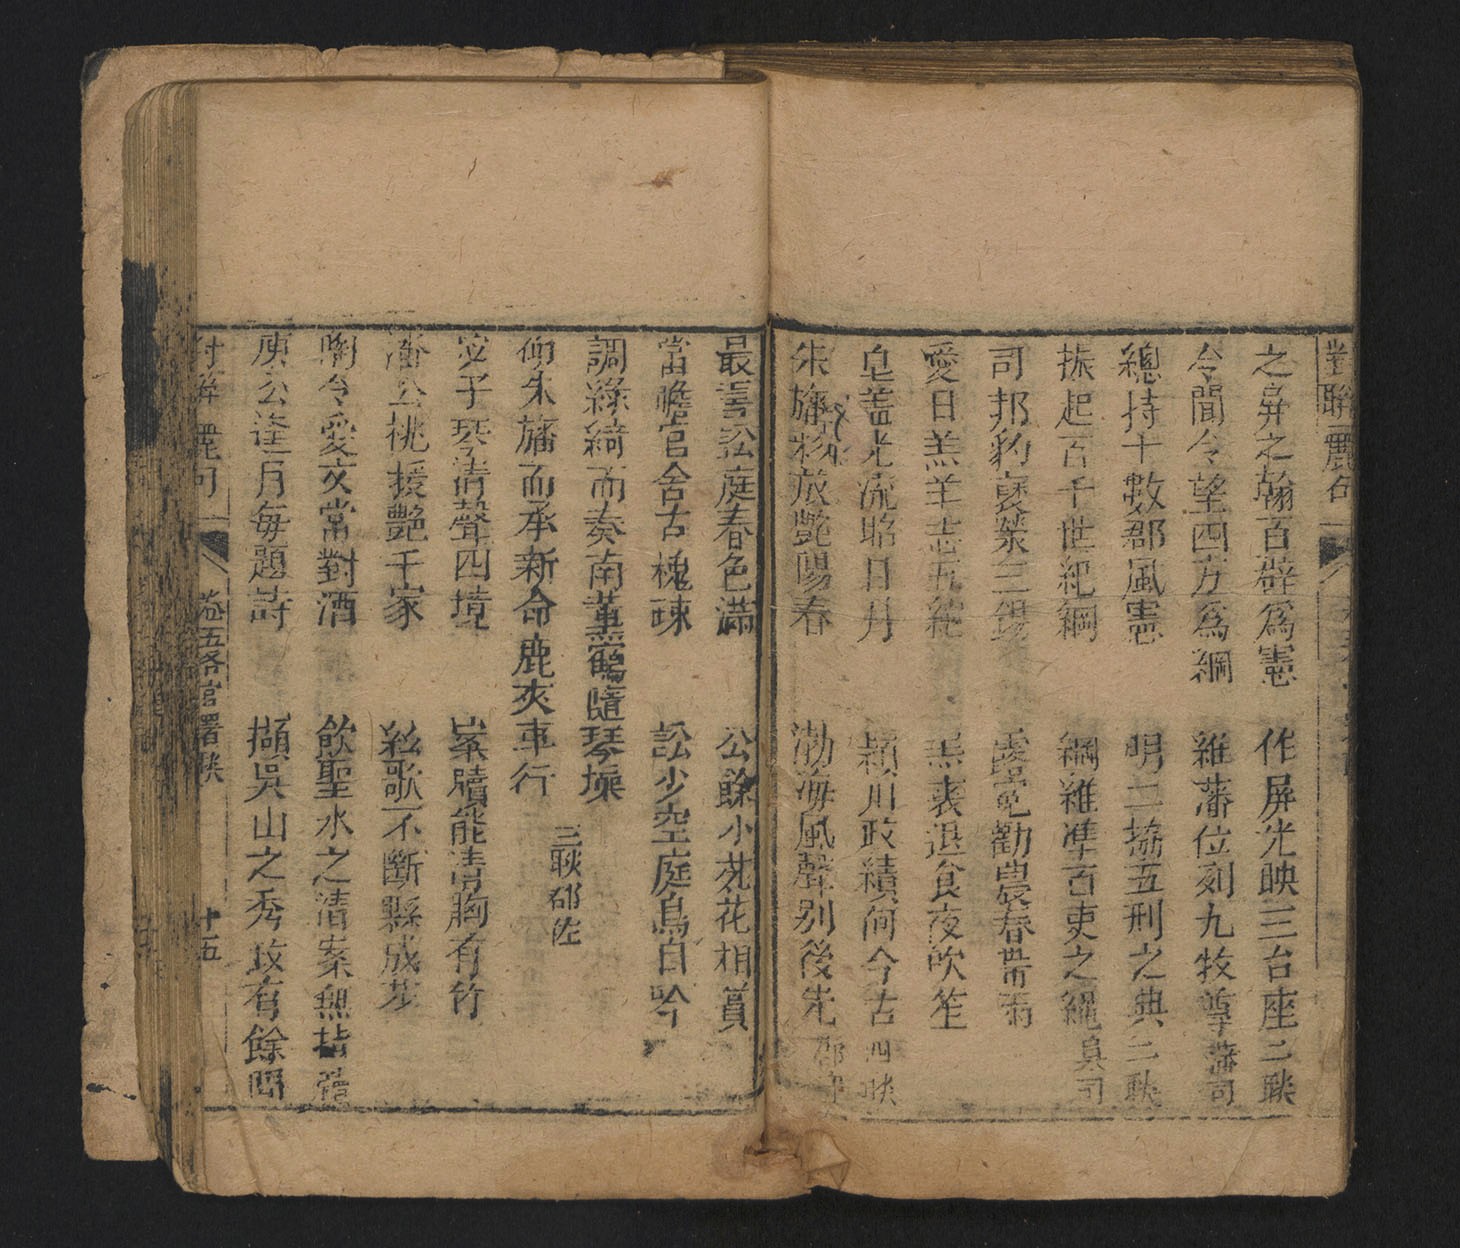 對聯麗句
之屏之翰百辟爲憲 作屏光映三台座 二联
令聞令望四方爲綱 維藩位列九牧尊 藩司
總持十數郡風憲 明二協五刑之典 二联
振起百千世紀綱 綱維準百吏之繩 臬司
司邦豹 勸農春
愛日羔羊志五紽 羔裘退食夜吹笙
皂蓋光流昭日月 潁川政績何今古 四联
朱旛物旅艷陽春 渤海風聲别後先 郡
最喜訟庭春色滿 公餘小苑花相賞
當瞻官舍古槐疎 訟少空庭鳥自吟
調綠綺而奏南薰鶴隨琴操
仰朱旛而承新命鹿夾車行 三联郡佐
宓子琴清聲四境 案牘能清胸有竹
潘公桃援艷千家 絃歌不斷縣成花
陶令愛文當對酒 飲聖水之清案無
庾公逢月每題詩 擷吳山之秀政有餘閒
對聯麗句 卷五各官署联 十五